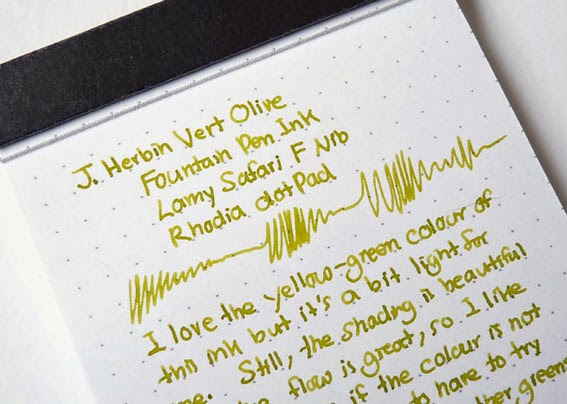 J. Herbin Vert Olive
Fountain Pen Ink
Lamy Safari F Nib
Rhodia dotPad
I love the yellow-green colour of
this ink but it's a bit light for
me. Still, the shading is beautiful
flow is great, so I like
if the colour is not
to have to try
greens